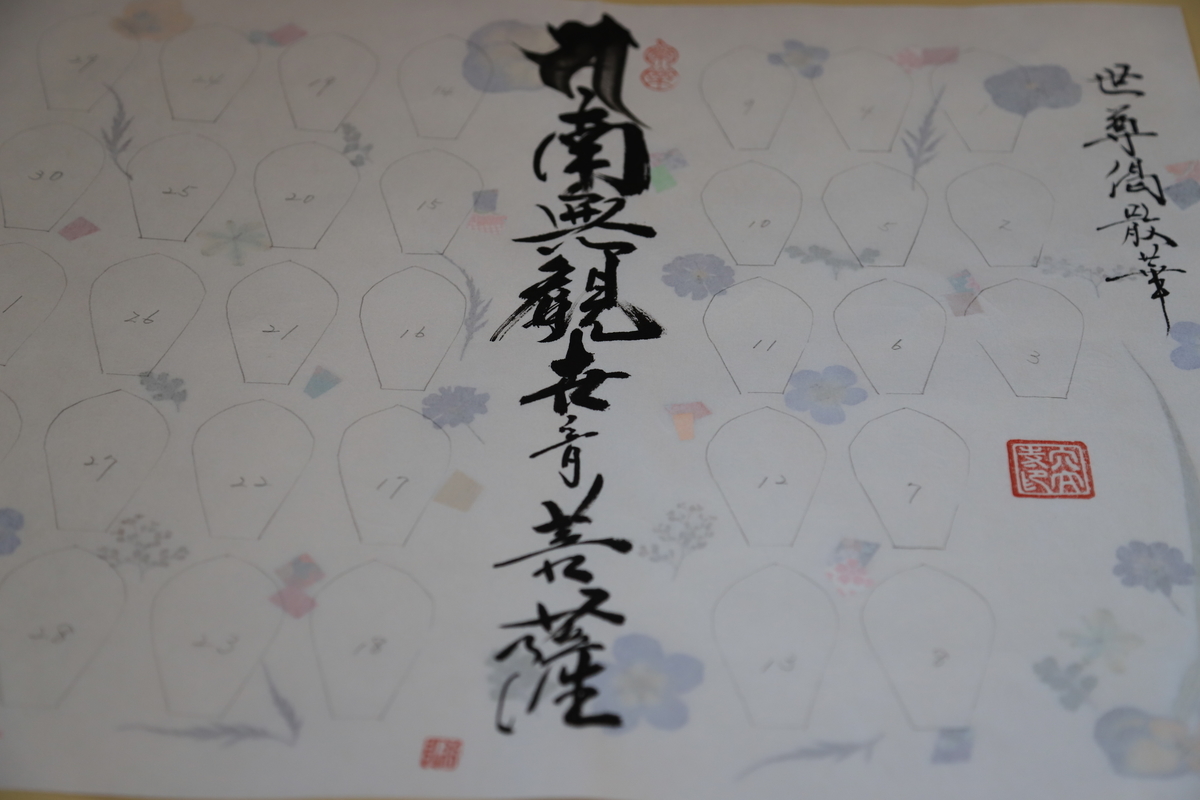 世尊偈散華
2
3
4
5
6
7
8
9
10
11
12
13
南無觀世音菩薩
14
15
16
17
18
19
20
21
22
23
24
25
26
27
28
29
30